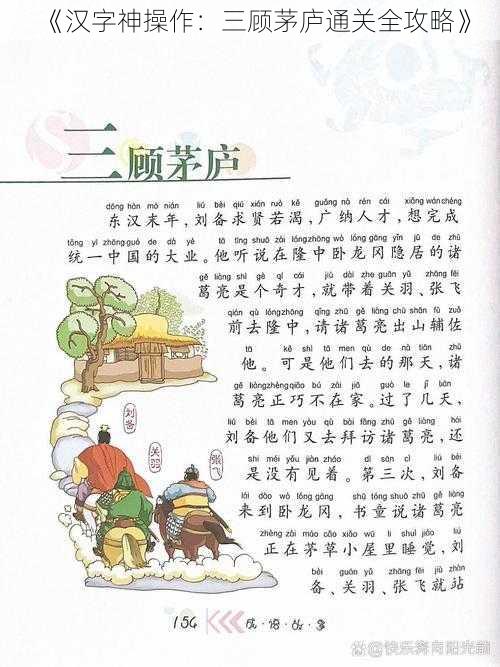 《汉字神操作：三顾茅庐通关全攻略》
三顾茅庐
dōng hàn mò nián liú bèi qiú xián ruò kě guǎng nà rén cái xiǎng wán chéng
东汉末年，刘备求贤若渴，广纳人才，想完成
tǒng yī zhōng guó de dà yè tā tīng shuō zài lóng zhōng wò lóng gāng yǐn jū de zhū
统一中国的大业。他听说在隆中卧龙冈隐居的诸
gě liàng shì gè qí cái jiù dài zhe guān yǔ zhāng fēi
葛亮是个奇才，就带着关羽、张飞
qián qù lóng zhōng qǐng zhū gě liàng chū shān fǔ zuǒ
前去隆中，请诸葛亮出山辅佐
tā kě shì tā men qù de nà tiān zhū
他。可是他们去的那天，诸
gě liàng zhèng qiǎo bú zài jiā guò le jǐ tiān
葛亮正巧不在家。过了几天，
liú bèi tā men yòu qù bài fǎng zhū gě liàng hái
刘备他们又去拜访诸葛亮，还
shì méi yǒu jiàn zháo dì sān cì liú bèi
是没有见着。第三次，刘备
lái dào wò lóng gāng shū tóng shuō zhū gě liàng
来到卧龙冈，书童说诸葛亮
zhèng zài máo cǎo xiǎo wū lǐ shuì jiào liú
正在茅草小屋里睡觉，刘
bèi guān yǔ zhāng fēi jiù zhàn
备、关羽、张飞就站
刘备
关羽
张飞
156
成·语·故·事